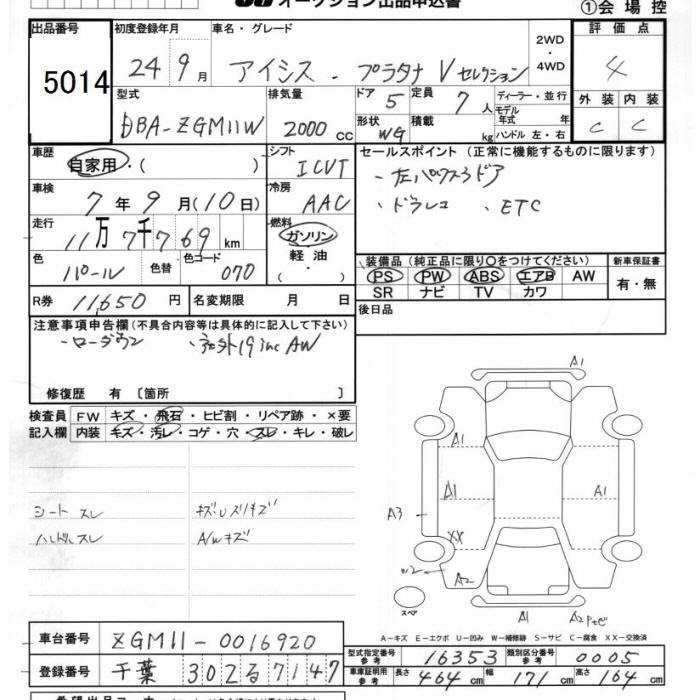 オークション出品申込書
①会場控
出品番号 5014
初度登録年月 24年9月
車名・グレード アイシス - プラタナ Vセレクション
2WD・4WD
評価点 4
外装 内装
C C
型式 DBA-ZGM11W
排気量 2000cc
ドア 5
形状 WG
定員 7人
積載 kg
ディーラー・並行
モデル年式 年
ハンドル 左・右
車歴 自家用・( )
シフト ICVT
車検 7年9月(10日)
冷房 AAC
走行 11万7千769km
燃料 ガソリン 軽油・( )
色 パール 色替 色コード 070
R券 11,650円
名変期限 月 日
セールスポイント (正常に機能するものに限ります)
・左パワスラドア
・ドラレコ 、ETC
装備品 (純正品に限り○をつけてください)
PS PW ABS エアB AW
SR ナビ TV カワ
新車保証書
有・無
後日品
注意事項申告欄(不具合内容等は具体的に記入して下さい)
・ローダウン ・社外19inc AW
修復歴 有 〔箇所 〕
検査員記入欄
FW キズ・飛石・ヒビ割・リペア跡・×要
内装 キズ・汚レ・コゲ・穴・スレ・キレ・破レ
シートスレ
ハンドルスレ
A/Wキズ
A1
A1
A1
A1
A3
XX
W2
A2
スペア
A1
A2
A-キズ E-エクボ U-凹み W-補修跡 S-サビ C-腐食 XX-交換済
車台番号 ZGM11-0016920
登録番号 千葉 302 る 7147
型式指定番号 参考 16353
類別区分番号 参考 0005
車庫証明用 参考 長さ 464cm 幅 171cm 高さ 164cm